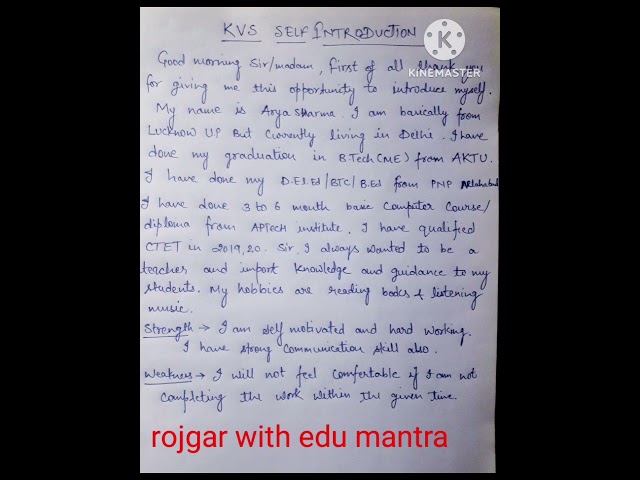 KVS SELF INTRODUCTION
KINEMASTER
Good morning Sir/madam, first of all thank you
for giving me this opportunity to introduce myself.
My name is Arya Sharma. I am basically from
Lucknow UP But Currently living in Delhi. I have
done my graduation in B.Tech (ME) from AKTU.
I have done my D.El.Ed/BTC/B.Ed from PNP Allahabad
I have done 3 to 6 month basic Computer Course/
diploma from APTECH institute. I have qualified
CTET in 2019,20. Sir, I always wanted to be a
teacher and import knowledge and guidance to my
students. My hobbies are reading books & listening
music.
Strength → I am self motivated and hard working.
I have strong communication skill also.
Weakness → I will not feel comfortable if I am not
Completing the work within the given time.
rojgar with edu mantra